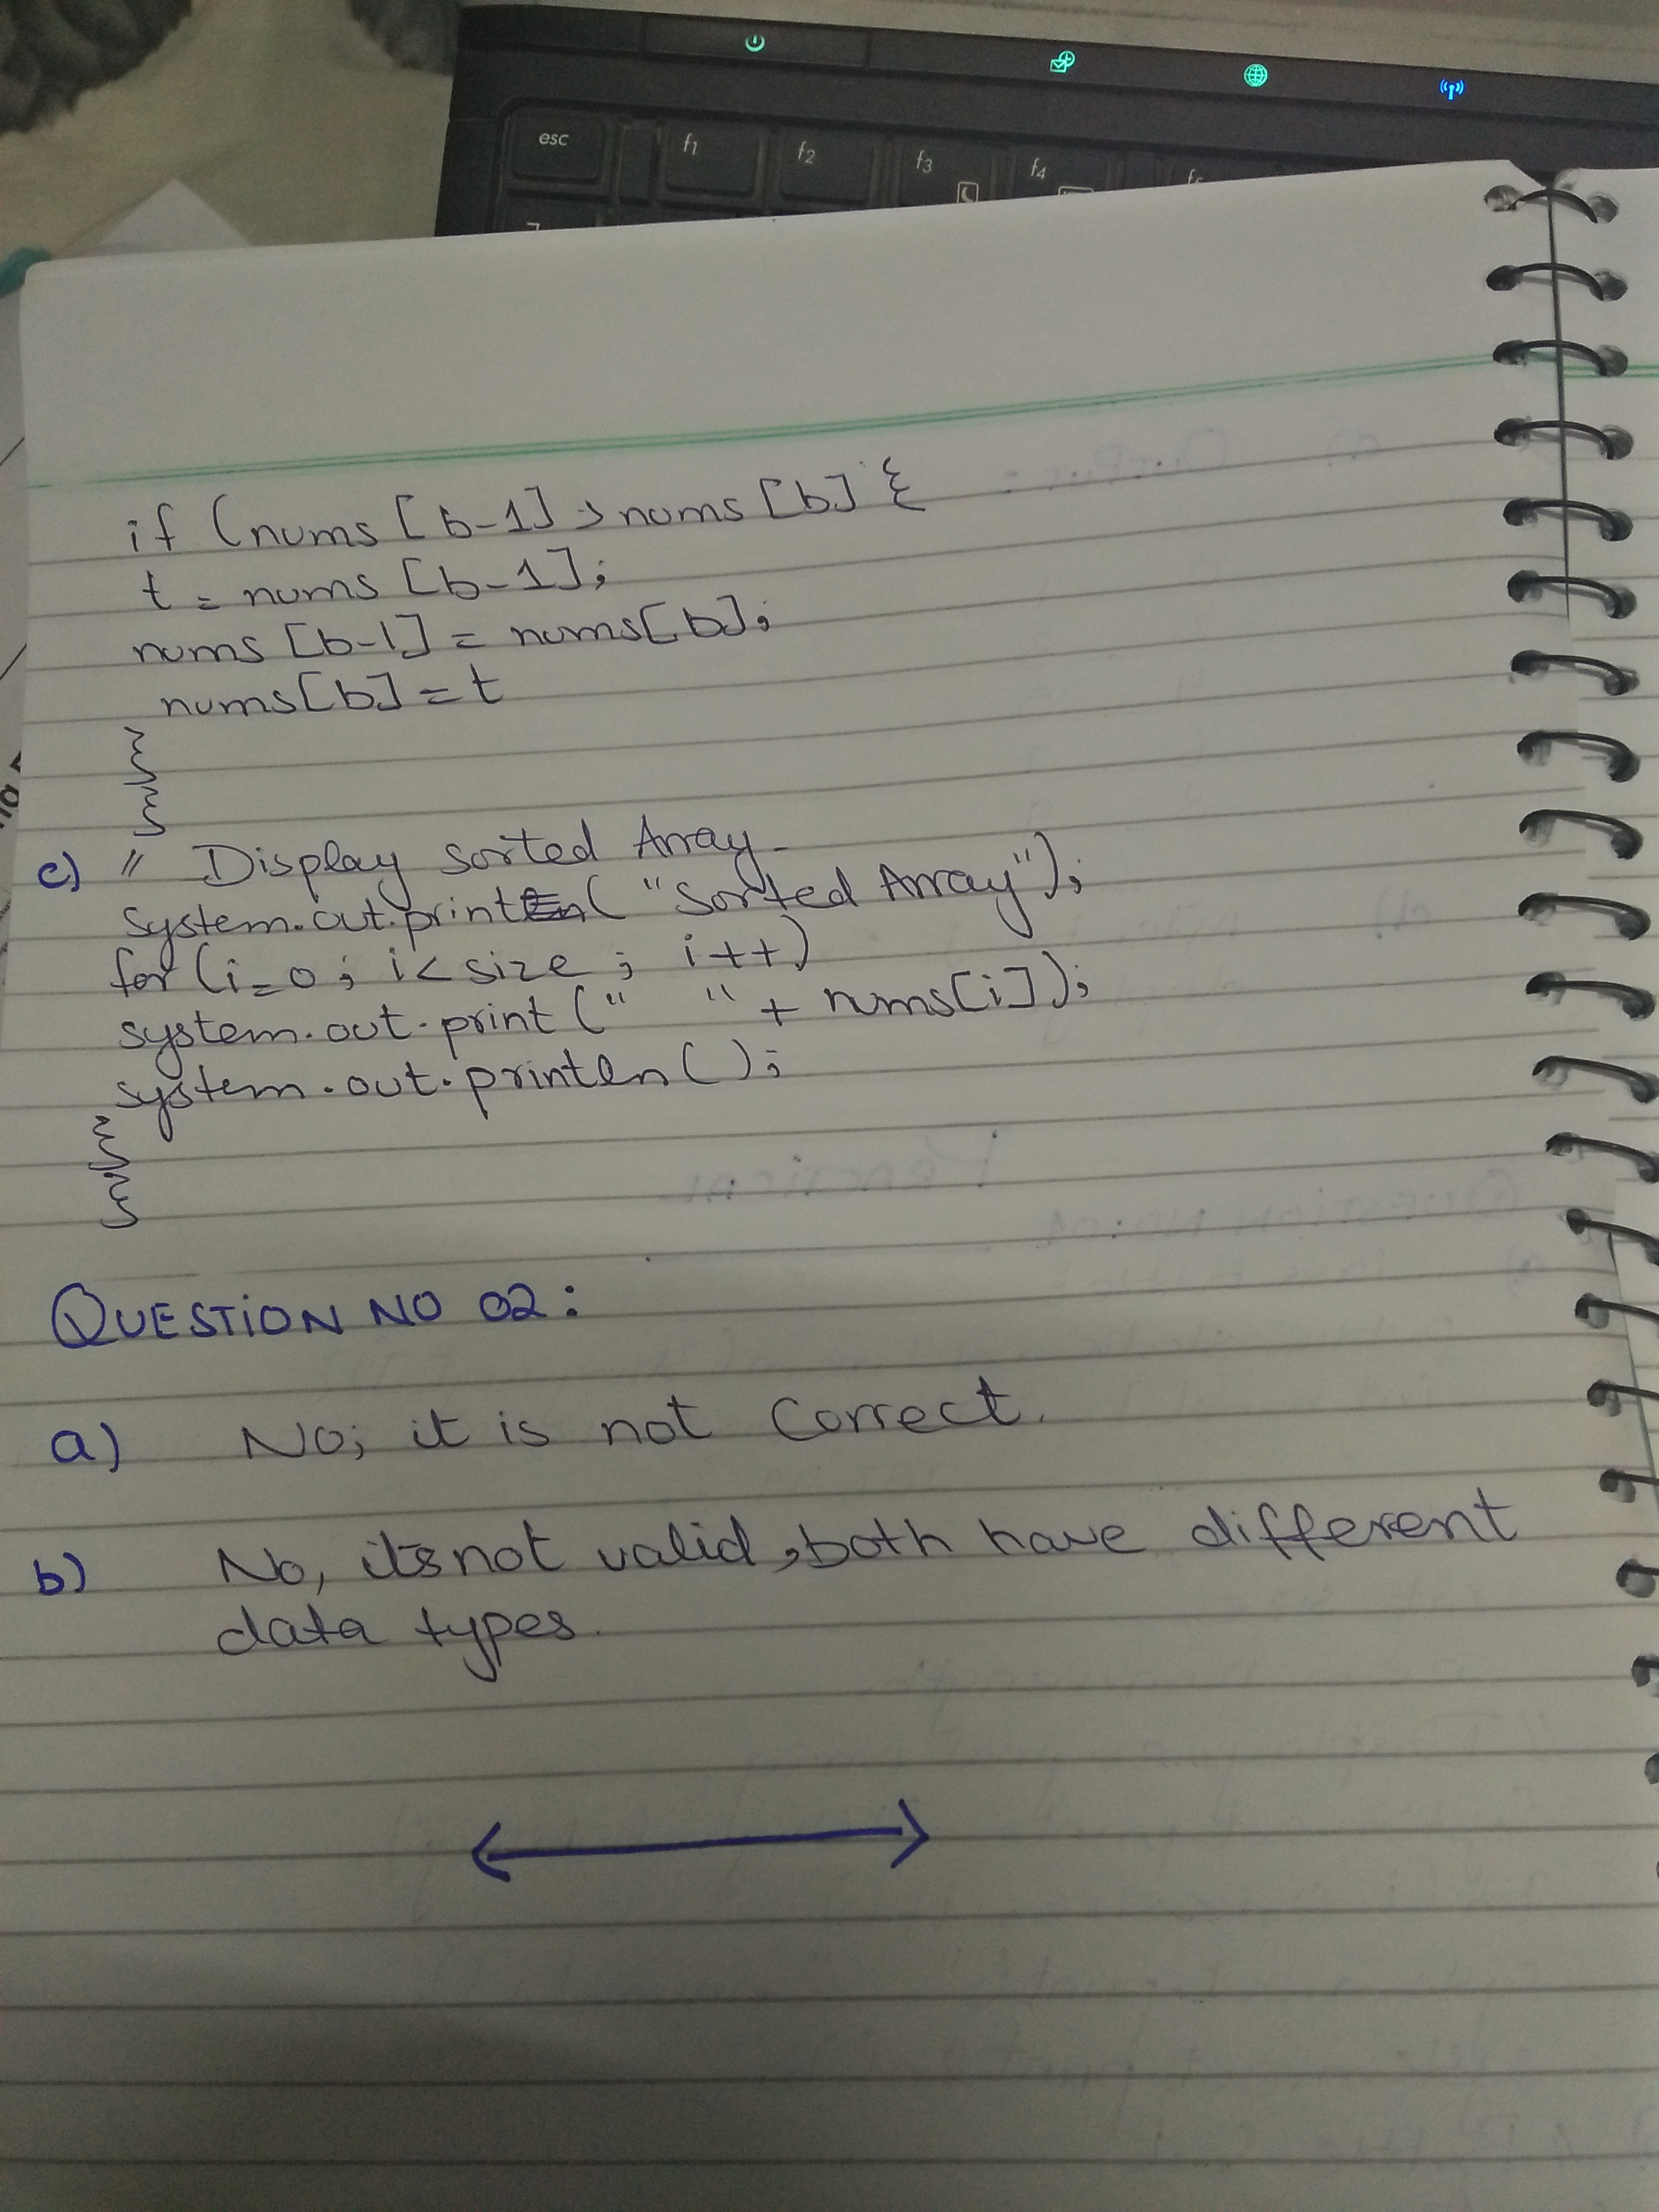 esc f1 f2 f3 f4
if (nums [b-1] > nums [b] {
t = nums [b-1];
nums [b-1] = nums[b];
nums[b] = t
}
}
c) // Display sorted Array.
system.out.print( "Sorted Array");
for (i=0; i<size; i++)
system.out.print (" " + nums[i]);
system.out.println();
}
}
QUESTION NO 02:
a) NO; it is not Correct.
b) No, its not valid, both have different
data types.